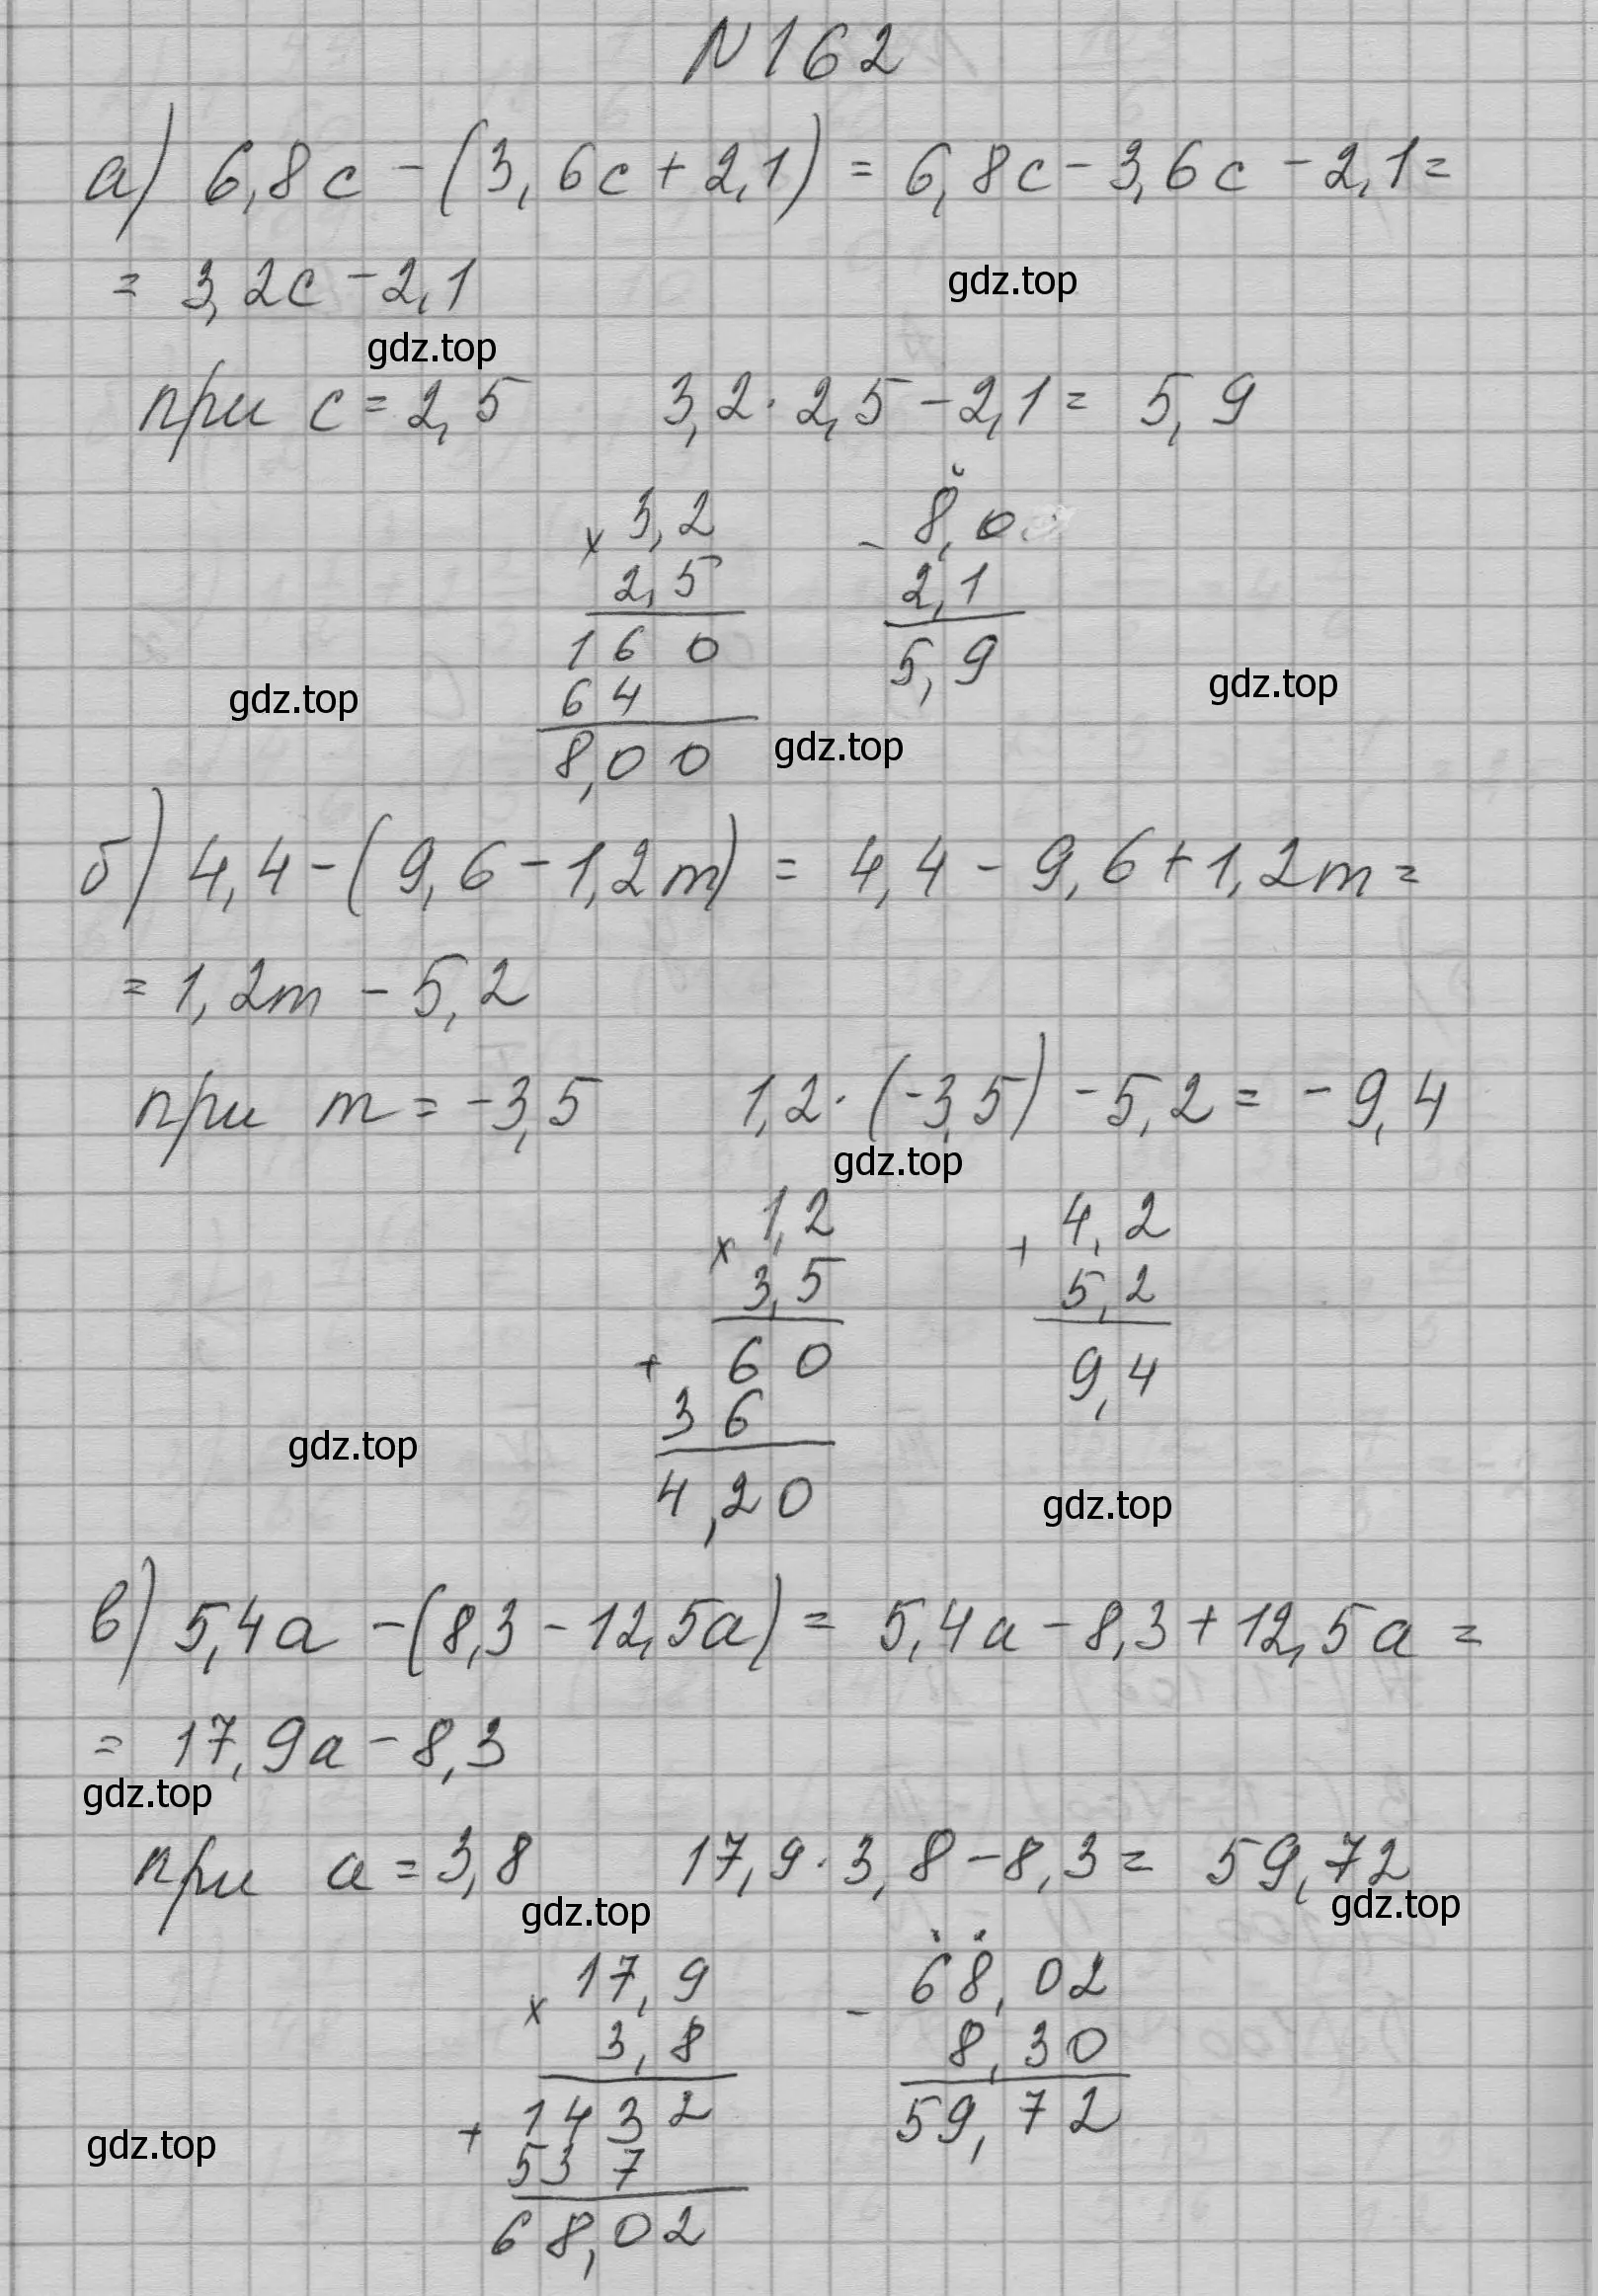 N 162
а) 6,8c - (3,6c + 2,1) = 6,8c - 3,6c - 2,1 =
= 3,2c - 2,1
gdz.top
gdz.top
при c = 2,5 3,2 · 2,5 - 2,1 = 5,9
× 3,2 - 8,0
2,5 2,1
160 5,9
64
gdz.top
gdz.top
8,00
gdz.top
б) 4,4 - (9,6 - 1,2m) = 4,4 - 9,6 + 1,2m =
= 1,2m - 5,2
при m = -3,5 1,2 · (-3,5) - 5,2 = -9,4
gdz.top
× 1,2 + 4,2
3,5 5,2
+ 60 9,4
36
gdz.top
4,20
gdz.top
в) 5,4a - (8,3 - 12,5a) = 5,4a - 8,3 + 12,5a =
= 17,9a - 8,3
gdz.top
при a = 3,8 17,9 · 3,8 - 8,3 = 59,72
gdz.top
gdz.top
× 17,9 - 68,02
3,8 8,30
+ 1432 59,72
gdz.top
537
68,02